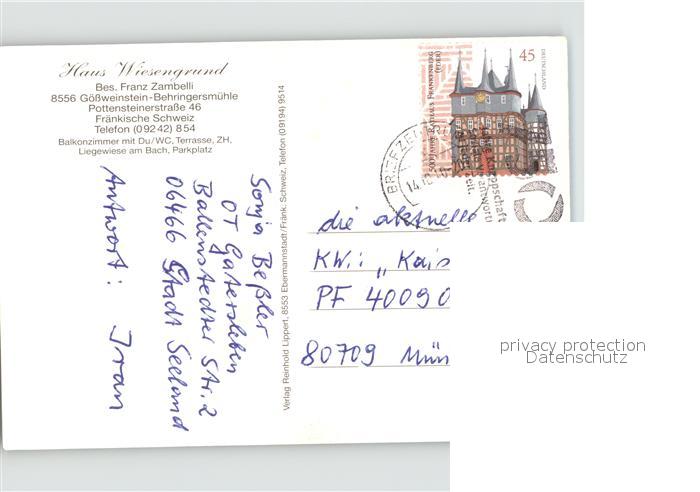 Haus Wiesengrund
Bes. Franz Zambelli
8556 Gößweinstein-Behringersmühle
Pottensteinerstraße 46
Fränkische Schweiz
Telefon (09242) 854
Balkonzimmer mit Du/WC, Terrasse, ZH,
Liegewiese am Bach, Parkplatz
Sonja Beßler
OT Gatersleben
Ballenstedter Str. 2
06466 Stadt Seeland
Antwort: Iran
Verlag Reinhold Lippert, 8553 Ebermannstadt/Fränk. Schweiz, Telefon (09194) 9514
500 JAHRE RATHAUS FRANKENBERG
(EDER)
45
DEUTSCHLAND
BRIEFZE
14.1
Knappschaft
die aktuelle
KW.: „Kais
PF 40090
80709 Mün
privacy protection
Datenschutz